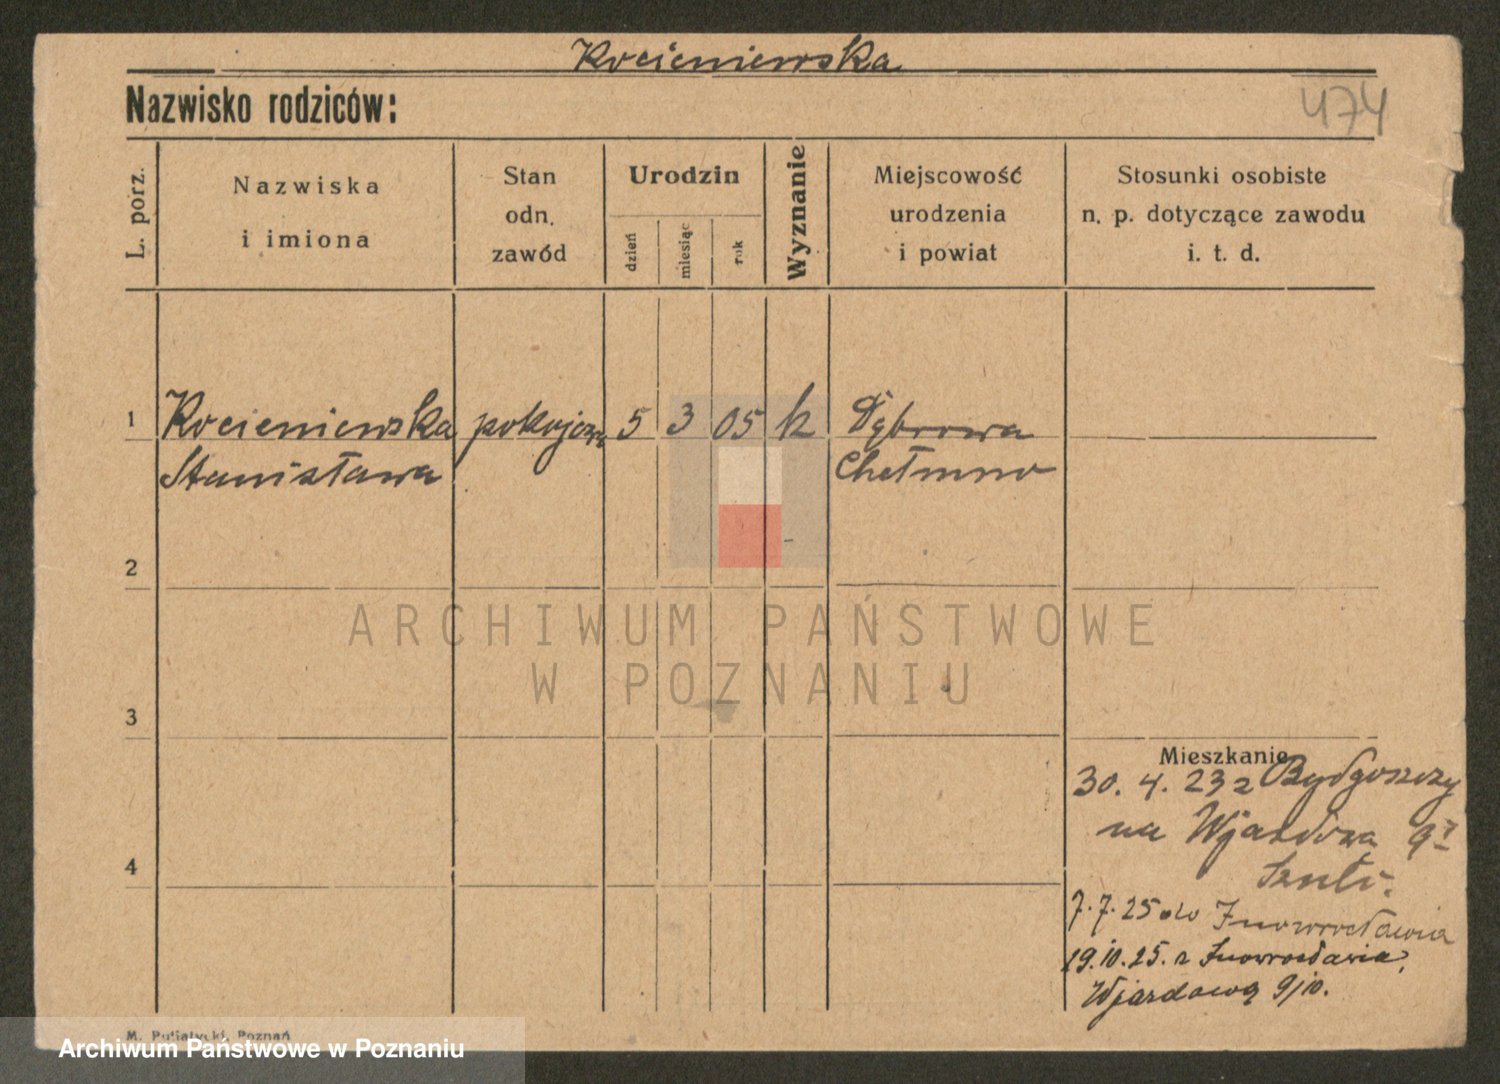 Kocieniewska
Nazwisko rodziców:
474
L. porz.
Nazwiska
i imiona
Stan
odn.
zawód
Urodzin
dzień
miesiąc
rok
Wyznanie
Miejscowość
urodzenia
i powiat
Stosunki osobiste
n. p. dotyczące zawodu
i. t. d.
1
Kocieniewska pokojowa 5 3 05 k Dąbrowa
Stanisława Chełmno
2
ARCHIWUM PAŃSTWOWE
W POZNANIU
3
Mieszkanie
30. 4. 23 z Bydgoszczy
na Wjazdowa 9
4
7. 7. 25 do Inowrocławia
19. 10. 25. z Inowrocławia,
Wjazdową 9/10.
M. Putiatycki, Poznań
Archiwum Państwowe w Poznaniu